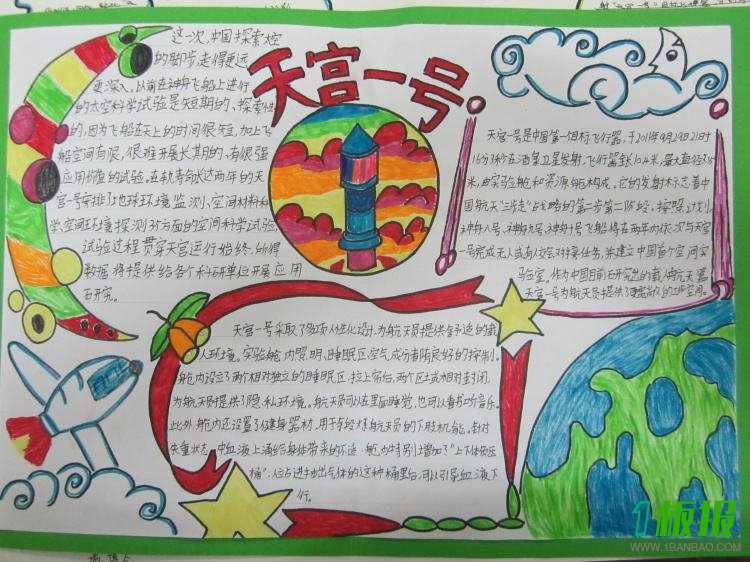 天宫一号
这一次,中国探索太空
的脚步,走得更远
更深入。以前在神舟飞船上进行
的太空科学试验是短期的、探索性
的,因为飞船在天上的时间很短,加上飞
船空间有限,很难开展长期的、有很强
应用价值的试验。在轨寿命长达两年的天
宫一号安排了地球环境监测、空间材料科
学、空间环境探测3方面的空间科学试验,
试验过程贯穿天宫运行始终,所得
数据将提供给各个科研单位开展应用
研究。
天宫一号是中国第一个目标飞行器,于2011年9月29日21时
16分3秒在酒泉卫星发射,飞行器全长10.4米,最大直径3.35
米,由实验舱和资源舱构成。它的发射标志着中
国航天“三步走”战略的第二步第二阶段。按照计划,
神舟八号、神舟九号、神舟十号飞船将在两年内依次与天宫
一号完成无人或有人交对接任务,并建立中国首个空间实
验室。作为中国目前研究出的载人航天器
天宫一号为航天员提供了的工作空间。
天宫一号采取了多项人性化设计,为航天员提供合予适的载
人环境。实验舱内照明、睡眠区空气成分者防良好的控制。
舱内设立了两个相对独立的睡眠区,拉上帘后,两个区域相对封闭,
为航天员提供了隐私环境。航天员可以在里面睡觉,也可以看书听音乐。
此外,舱内还设置了健身器材,用于锻炼航天员的下肢机能。针对
失重状态,中血液上涌给身体带来的不适,舱内特别增加了“上下体负压
桶”,人站进抽出气体的这种桶里后,可以引导血液下
行。
1板报
WWW.1BANBAO.COM